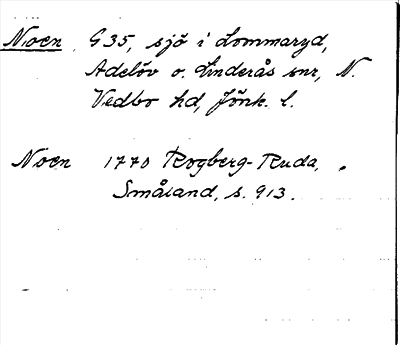 Noen G35, sjö i Lommaryd,
Adelöv o. Linderås snr, N.
Vedbo hd, Jönk. l.
Noen 1770 Rogberg-Ruda,
Småland, s. 913.